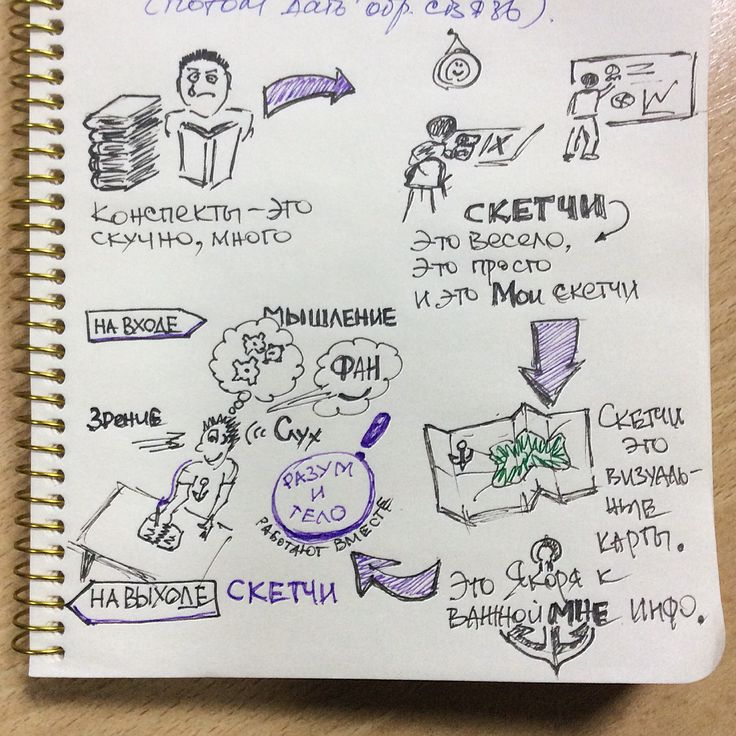 (потом дать обр. связь).
Конспекты – это
скучно, много
СКЕТЧИ
это весело,
это просто
и это Мои скетчи
НА ВХОДЕ
МЫШЛЕНИЕ
ФАН.
Зрение
Слух
РАЗУМ
И
ТЕЛО
РАБОТАЮТ ВМЕСТЕ
Скетчи
это
визуаль-
ные
карты.
Это Якоря к
важной МНЕ инфо.
НА ВЫХОДЕ
СКЕТЧИ